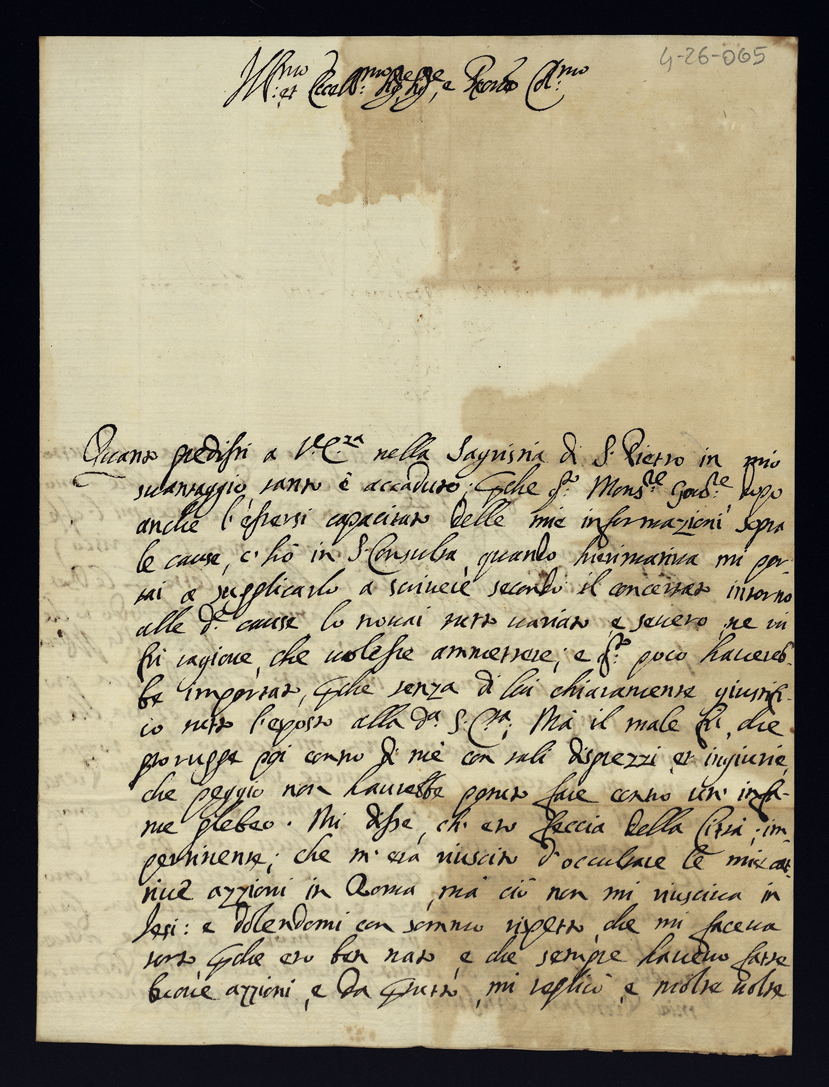 4-26-065
Ill.mo et Eccell.mo Sig.re Sig.re, e Pron Col.mo
Quanto predissi a V. E.za nella Sagristia di S. Pietro in mio
svantaggio, tanto è accaduto; Mons.re Gov.re dopo
anche l'essersi capacitato delle mie informazioni sopra
le cause, c'hò in S. Consulta, quando hierimattina mi por-
tai a supplicarlo a scivere secondo il concertato intorno
alle d.e cause lo trovai tutto variato, e severo, ne vi
fù ragione, che volesse ammettere; e poco havereb-
be importato, che senza di lui chiaramente giustifi-
co tutto l'esposto alla d.a S. C.ta; Mà il male fù, che
proruppe poi contro di mè con tali disprezzi, et ingiurie,
che peggio non haurebbe potuto fare contro un' infa-
me plebeo. Mi disse, ch'ero feccia della Città, im-
pertinente; che m'era riuscito d'occultare le mie cat-
tive azzioni in Roma, mà ciò non mi riusciva in
Jesi: e dolendomi con sommo rispetto, che mi faceva
torto perche ero ben nato, e che sempre havevo fatte
buone azzioni, e da mi replicò, e molte volte